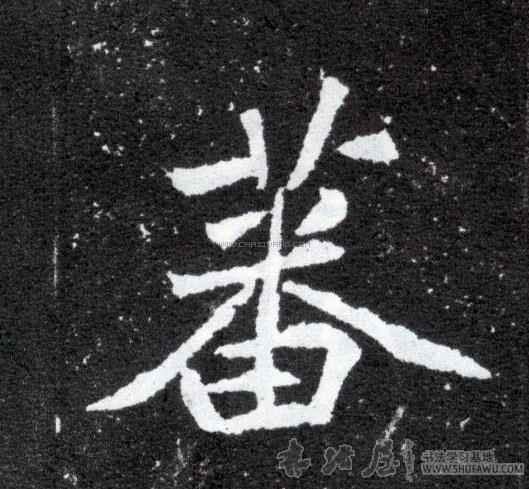 蕃
WWW.CHAZIDIAN.COM
书法学习基地
WWW.SHUFAWU.COM